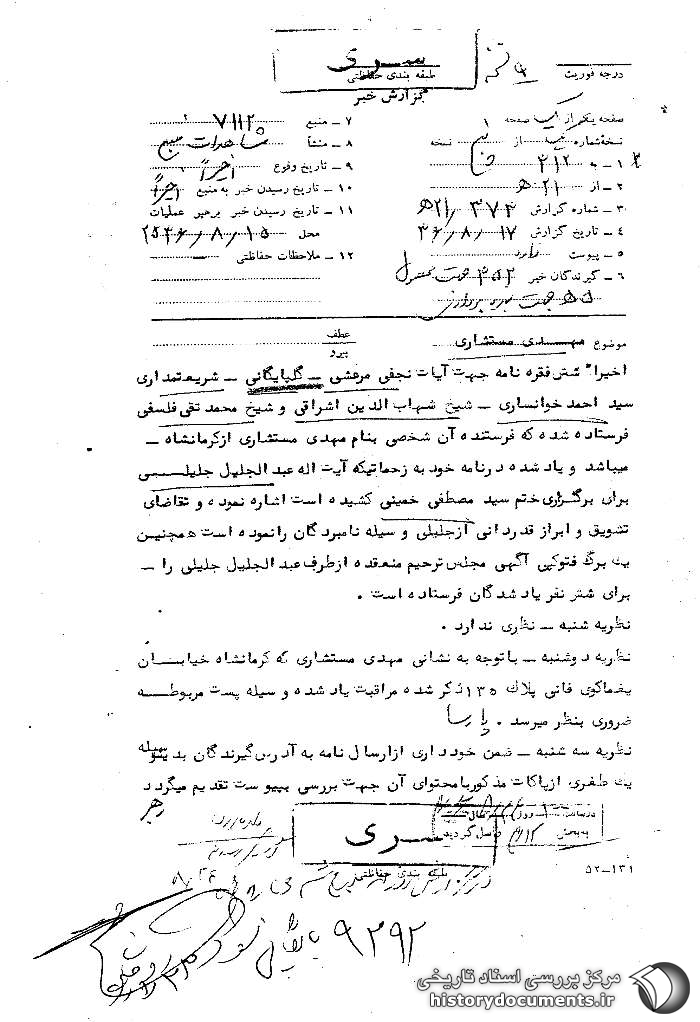 سری
درجه فوریت
طبقه بندی حفاظتی
گزارش خبر
صفحه یکم از یک صفحه
۷ ـ منبع ۷۱۱۲
نسخه شماره از نسخه
۸ ـ منشأ مشاهدات منبع
۱ ـ به ۳۱۲
۹ ـ تاریخ وقوع اخیراً
۲ ـ از ۲۱ ه‍
۱۰ ـ تاریخ رسیدن خبر به منبع اخیراً
۳ ـ شماره گزارش ۳۷۴ / ۲۱ه‍
۱۱ ـ تاریخ رسیدن خبر برهبر عملیات
۴ ـ تاریخ گزارش ۳۶/۸/۱۷
محل ۲۵۳۶/۸/۱۵
۵ ـ پیوست دارد
۱۲ ـ ملاحظات حفاظتی
۶ ـ گیرندگان خبر
موضوع مهدی مستشاری
عطف
پیرو
اخیرا" شش فقره نامه جهت آیات نجفی مرعشی ـ گلپایگانی ـ شریعتمداری
سید احمد خوانساری ـ شیخ شهاب الدین اشراقی و شیخ محمد تقی فلسفی
فرستاده شده که فرستنده آن شخصی بنام مهدی مستشاری از کرمانشاه ـ
میباشد و یاد شده در نامه خود به زحماتیکه آیت اله عبد الجلیل جلیلی
برای برگزاری ختم سید مصطفی خمینی کشیده است اشاره نموده و تقاضای
تشویق و ابراز قدردانی از جلیلی و سیله نامبردگان را نموده است همچنین
یک برگ فتوکپی آگهی مجلس ترحیم منعقده از طرف عبد الجلیل جلیلی را ـ
برای شش نفر یاد شدگان فرستاده است .
نظریه شنبه ـ نظری ندارد .
نظریه دوشنبه ـ با توجه به نشانی مهدی مستشاری که کرمانشاه خیابان
یغماکوی فانی پلاک ۱۳۵ ذکر شده مراقبت یاد شده و سیله پست مربوطه
ضروری بنظر میرسد . پارسا
نظریه سه شنبه ـ ضمن خودداری از ارسال نامه به آدرس گیرندگان بدینوسیله
یک طغری از پاکات مذکور با محتوای آن جهت بررسی بپیوست تقدیم میگردد
رهبر
سری
طبقه بندی حفاظتی
به بخش ۳۱۲ واصل گردید
۵۲ـ۱۳۱
۹۲۹۲
مرکز بررسی اسناد تاریخی
historydocuments.ir